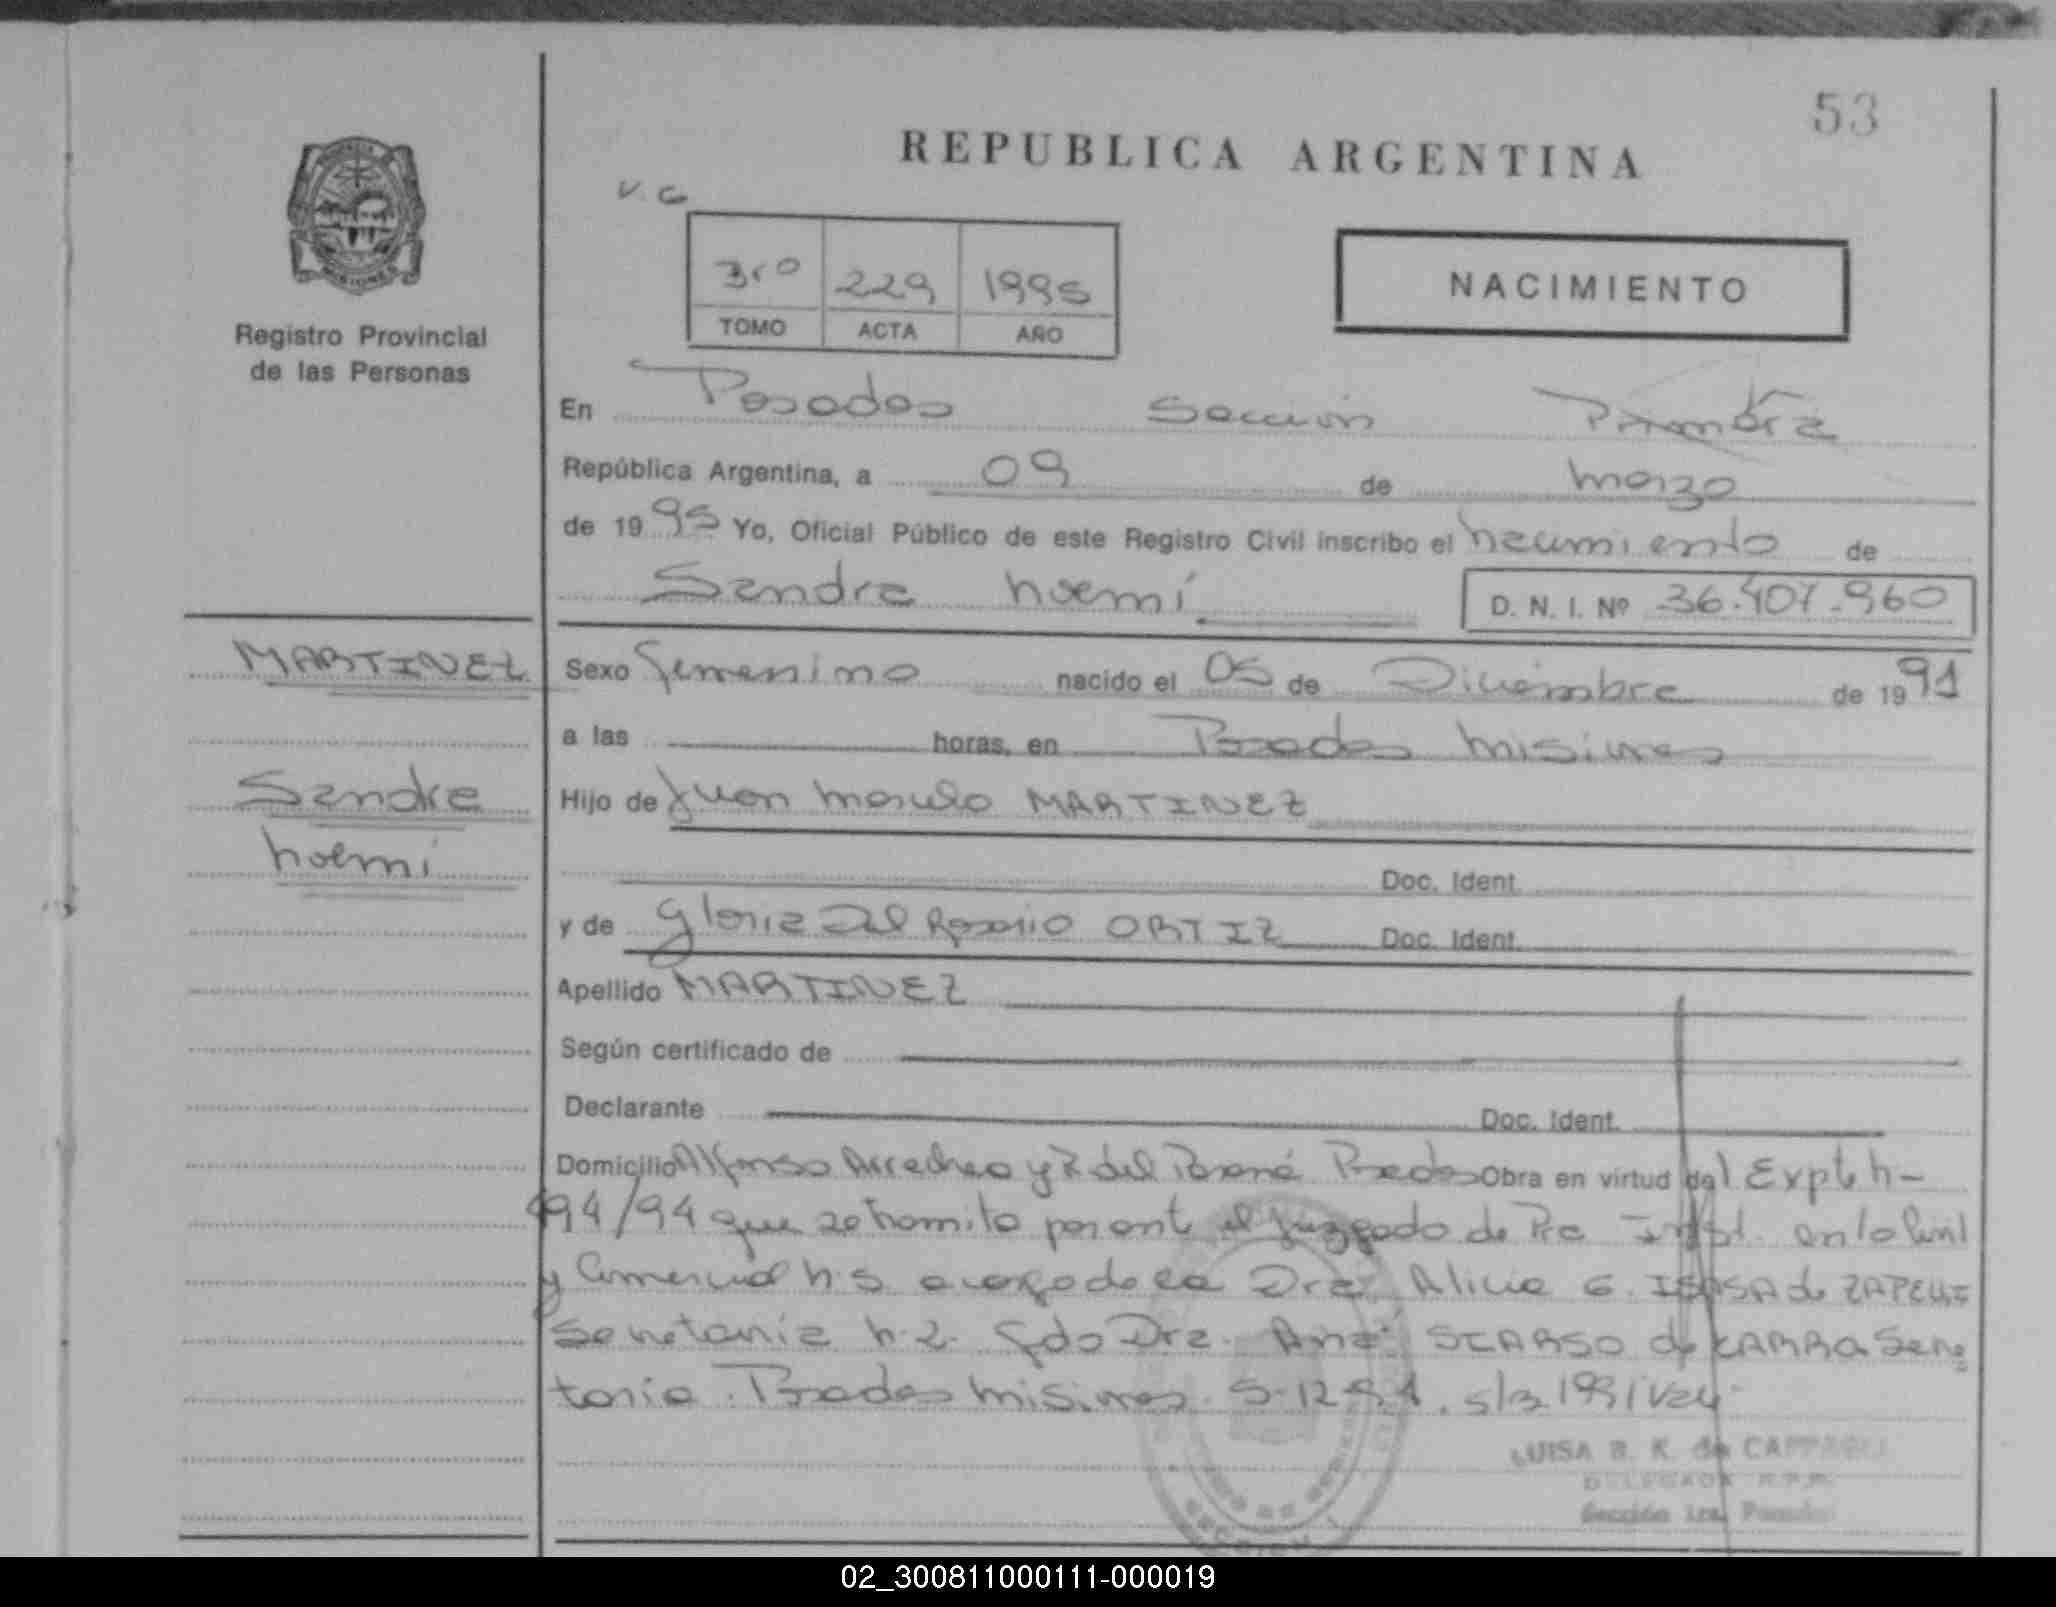 53
REPUBLICA ARGENTINA
V. G
3ro 229 1995
TOMO ACTA AÑO
NACIMIENTO
Registro Provincial
de las Personas
En Posadas Sección Primera
República Argentina, a 09 de marzo
de 1995 Yo, Oficial Público de este Registro Civil inscribo el nacimiento de
Sandra Noemí D. N. I. Nº 36.407.960
MARTINEZ
Sandra
Noemí
Sexo femenino nacido el 05 de Diciembre de 1991
a las horas, en Posadas Misiones
Hijo de Juan Marcelo MARTINEZ
Doc. Ident.
y de Gloria Del Rosario ORTIZ Doc. Ident.
Apellido MARTINEZ
Según certificado de
Declarante Doc. Ident.
Domicilio Alfonso Arrechea y R. del Paraná Posadas Obra en virtud del Expte n-
494/94 que se tramita por ante el Juzgado de Pra Inst. en lo Civil
y Comercial n. 5 a cargo de la Dra. Alicia G. ISASA de
Secretaría n. 2. fdo Dra. Ana de Secre
taria. Posadas Misiones. 5-12-94.
LUISA B. K. de
DELEGADA R.P.P.
Sección 1ra. Posadas
02_300811000111-000019